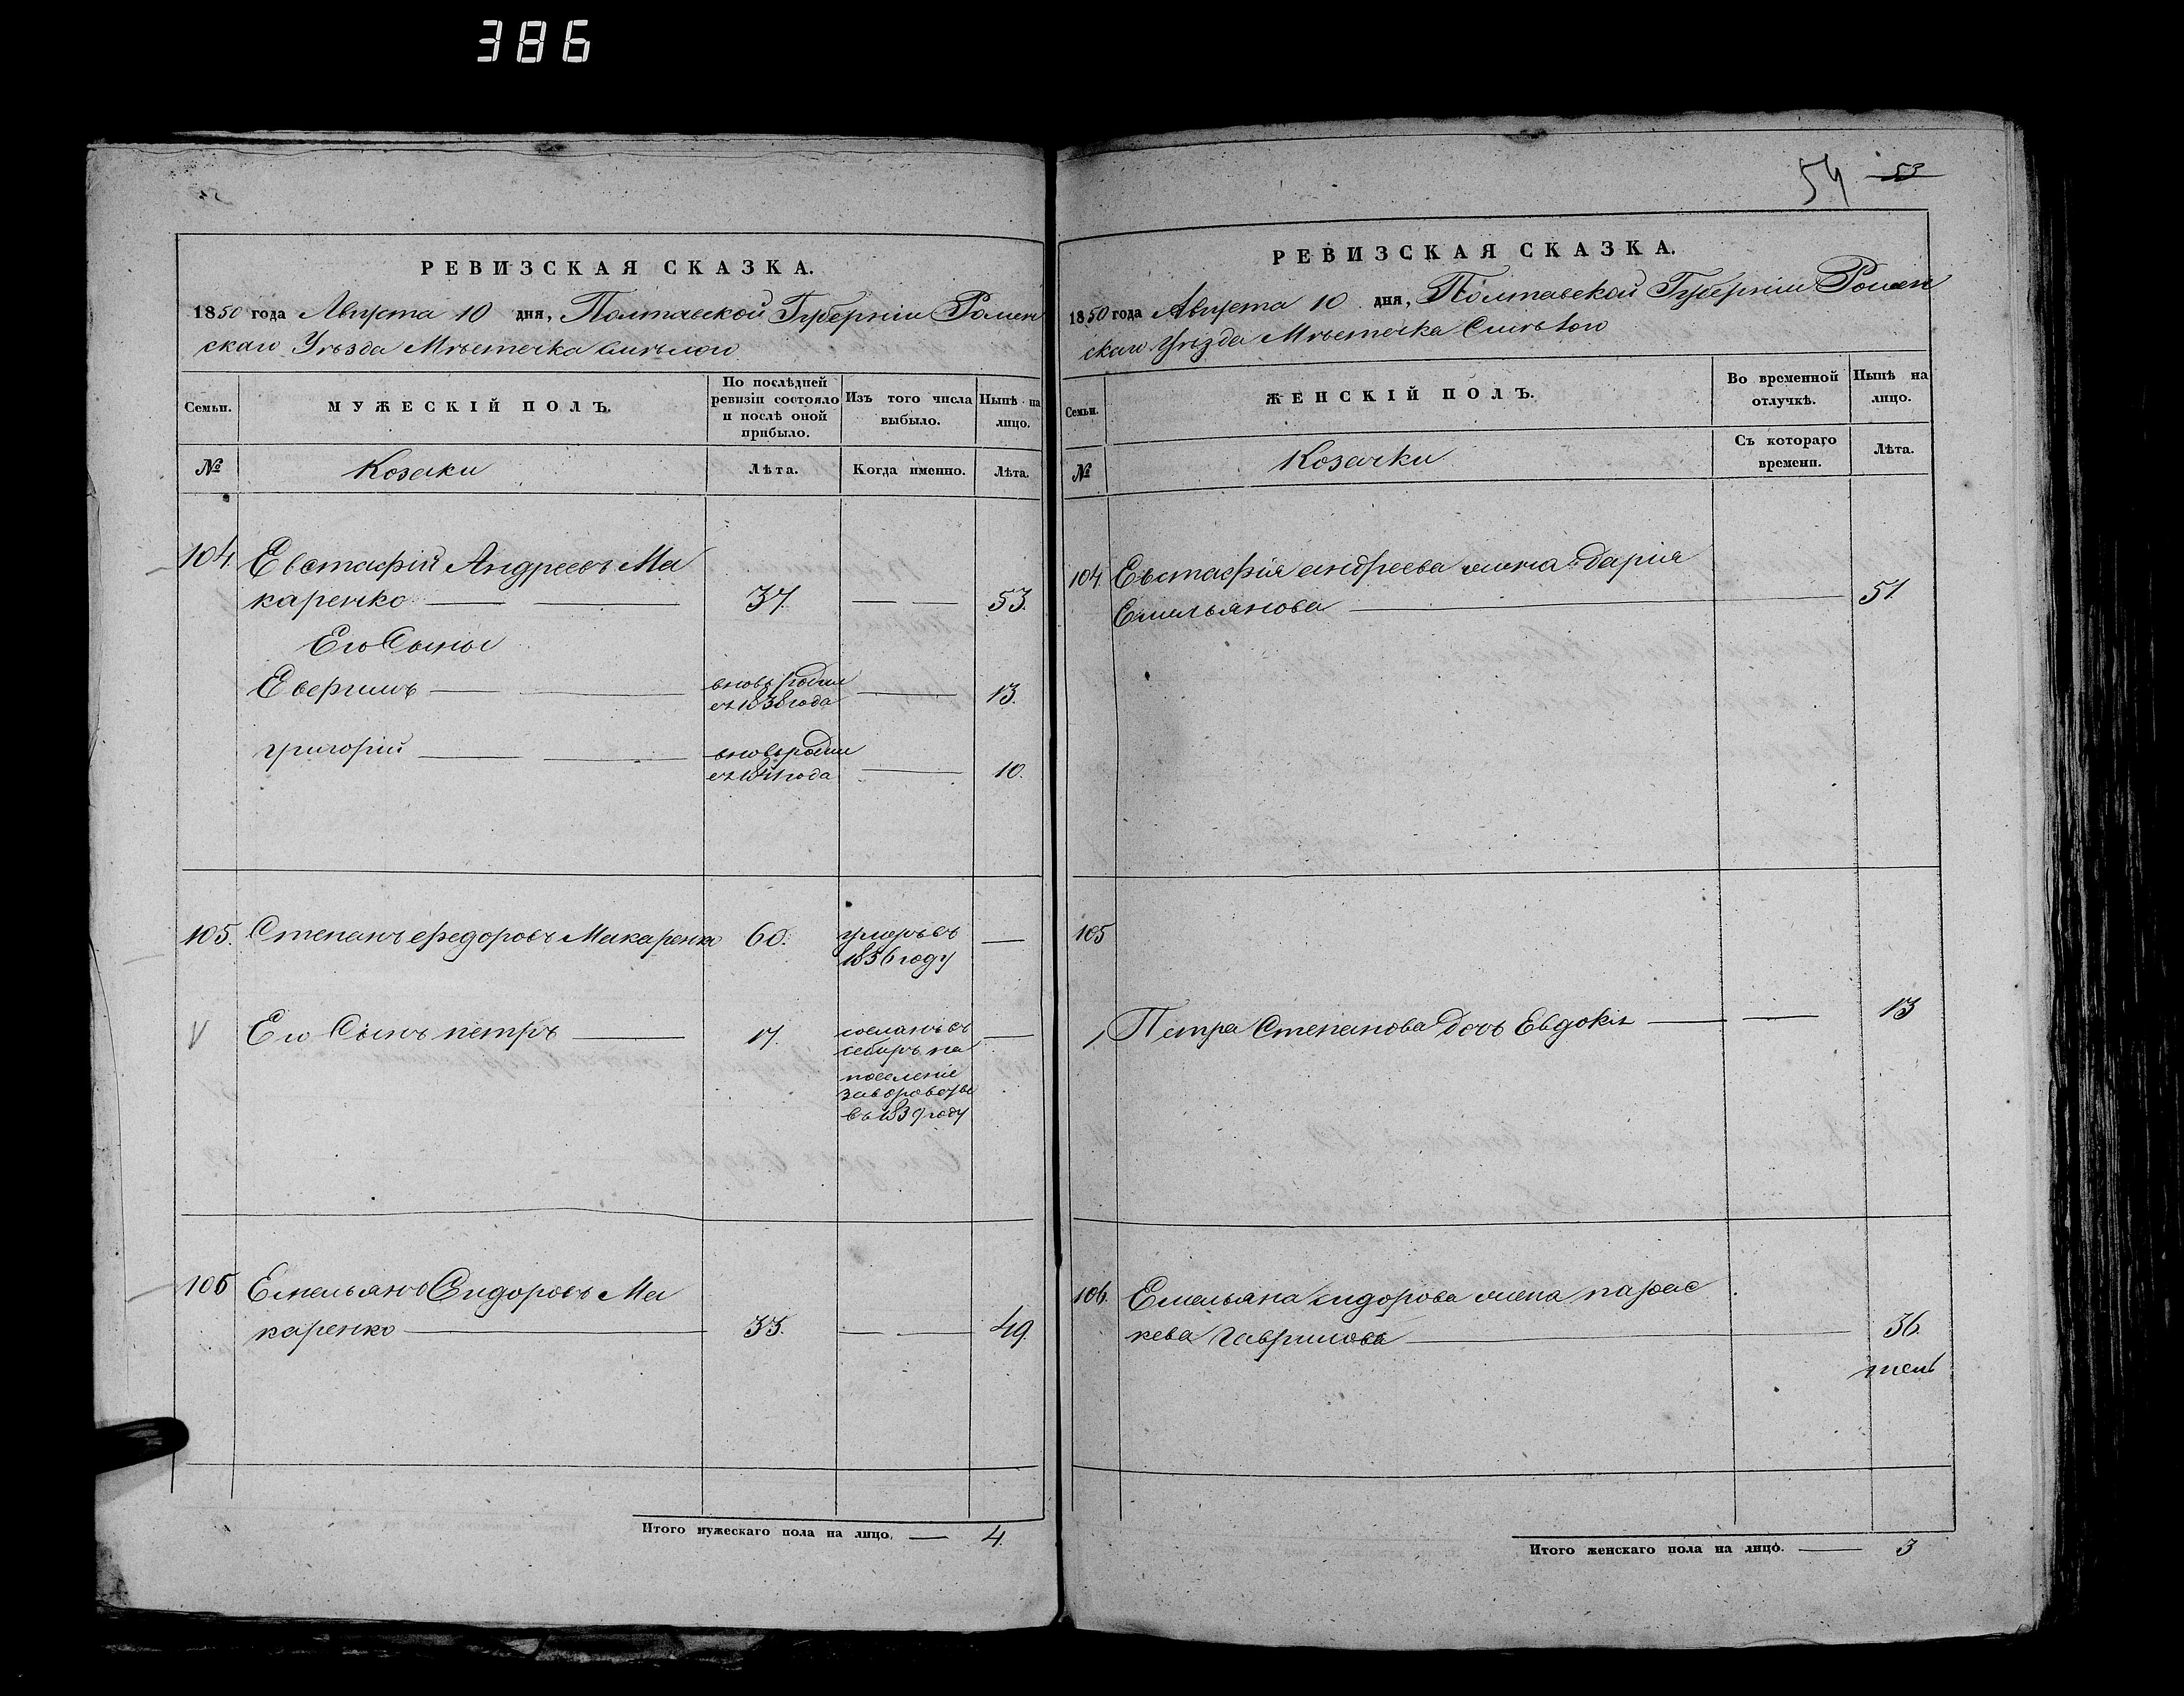 386
РЕВИЗСКАЯ СКАЗКА.
1850 года Августа 10 дня, Полтавской Губерніи Ромен
скаго Уѣзда Мѣстечка Смѣлого
Семьи.
МУЖЕСКІЙ ПОЛЪ.
По послѣдней
ревизіи состояло
и послѣ оной
прибыло.
Изъ того числа
выбыло.
Нынѣ на
лицо.
№
Козаки
Лѣта.
Когда именно.
Лѣта.
104. Евстафій Андреевъ Ма
каренко 37. 53.
Его Сыны
вновь роди
13.
сь 1838 года
григорій вновь роди
сь 1841 года 10.
105. Степанъ федоровъ Макаренко 60. умеръ въ
1836 году
V Его Сынъ петръ 17. сосланъ въ
сибирь на
поселение
за воровство
въ 1839 году
106 Емельянъ Сидоровъ Ма
каренко 33. 49.
Итого мужескаго пола на лицо. 4.
54 53
РЕВИЗСКАЯ СКАЗКА.
1850 года Августа 10 дня, Полтавской Губерніи Ромен
скаго Уѣзда Мѣстечка Смѣлого
Семьи.
ЖЕНСКІЙ ПОЛЪ.
Во временной
отлучкѣ.
Нынѣ на
лицо.
№
Козачки
Съ котораго
времени.
Лѣта.
104. Евстафія андреева жена Дарія
Емельянова 51.
105
Петра Степанова дочь Евдокія 13
106. Емельяна сидорова жена парас
кева гаврилова 36.
Итого женскаго пола на лицо. 3